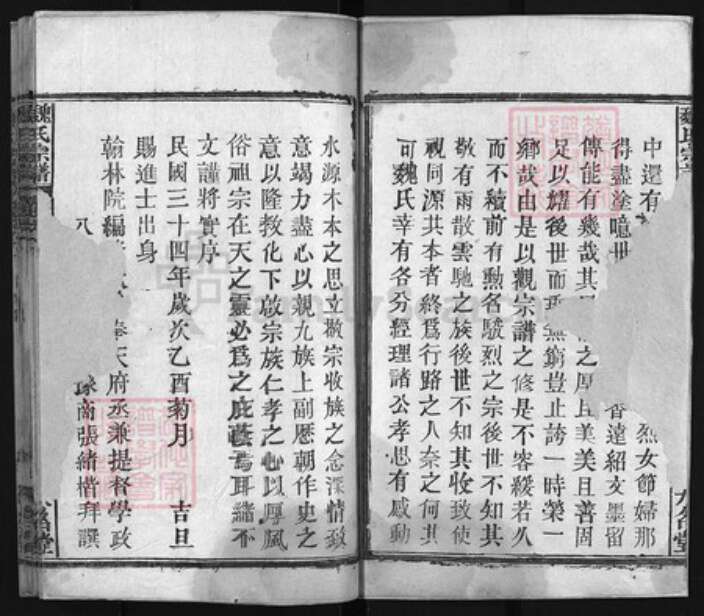 魏氏宗
中還有
烈女節婦那
得盡塗噫世
香達紹文墨留
傳能有幾哉其
之厚且美美且善固
足以燿後世而
無窮豈止誇一時榮一
鄉哉由是以觀宗譜之修是不容緩若久
而不續前有勲名駿烈之宗後世不知其
敬有雨散雲馳之族後世不知其收致使
視同源共本者終爲行路之人奈之何其
可魏氏幸有各分經理諸公孝思有感動
九畣堂
水源木本之思立敬宗收族之念深情致
意竭力盡心以親九族上副歷朝作史之
意以隆教化下啟宗族仁孝之心以厚風
俗祖宗在天之靈必爲之庇蔭焉耳緒不
文謹將實序
民國三十四年歲次乙酉菊月 吉旦
賜進士出身
翰林院編
奉天府丞兼提督學政
八
南張緒楷拜譔
魏氏宗譜
堂